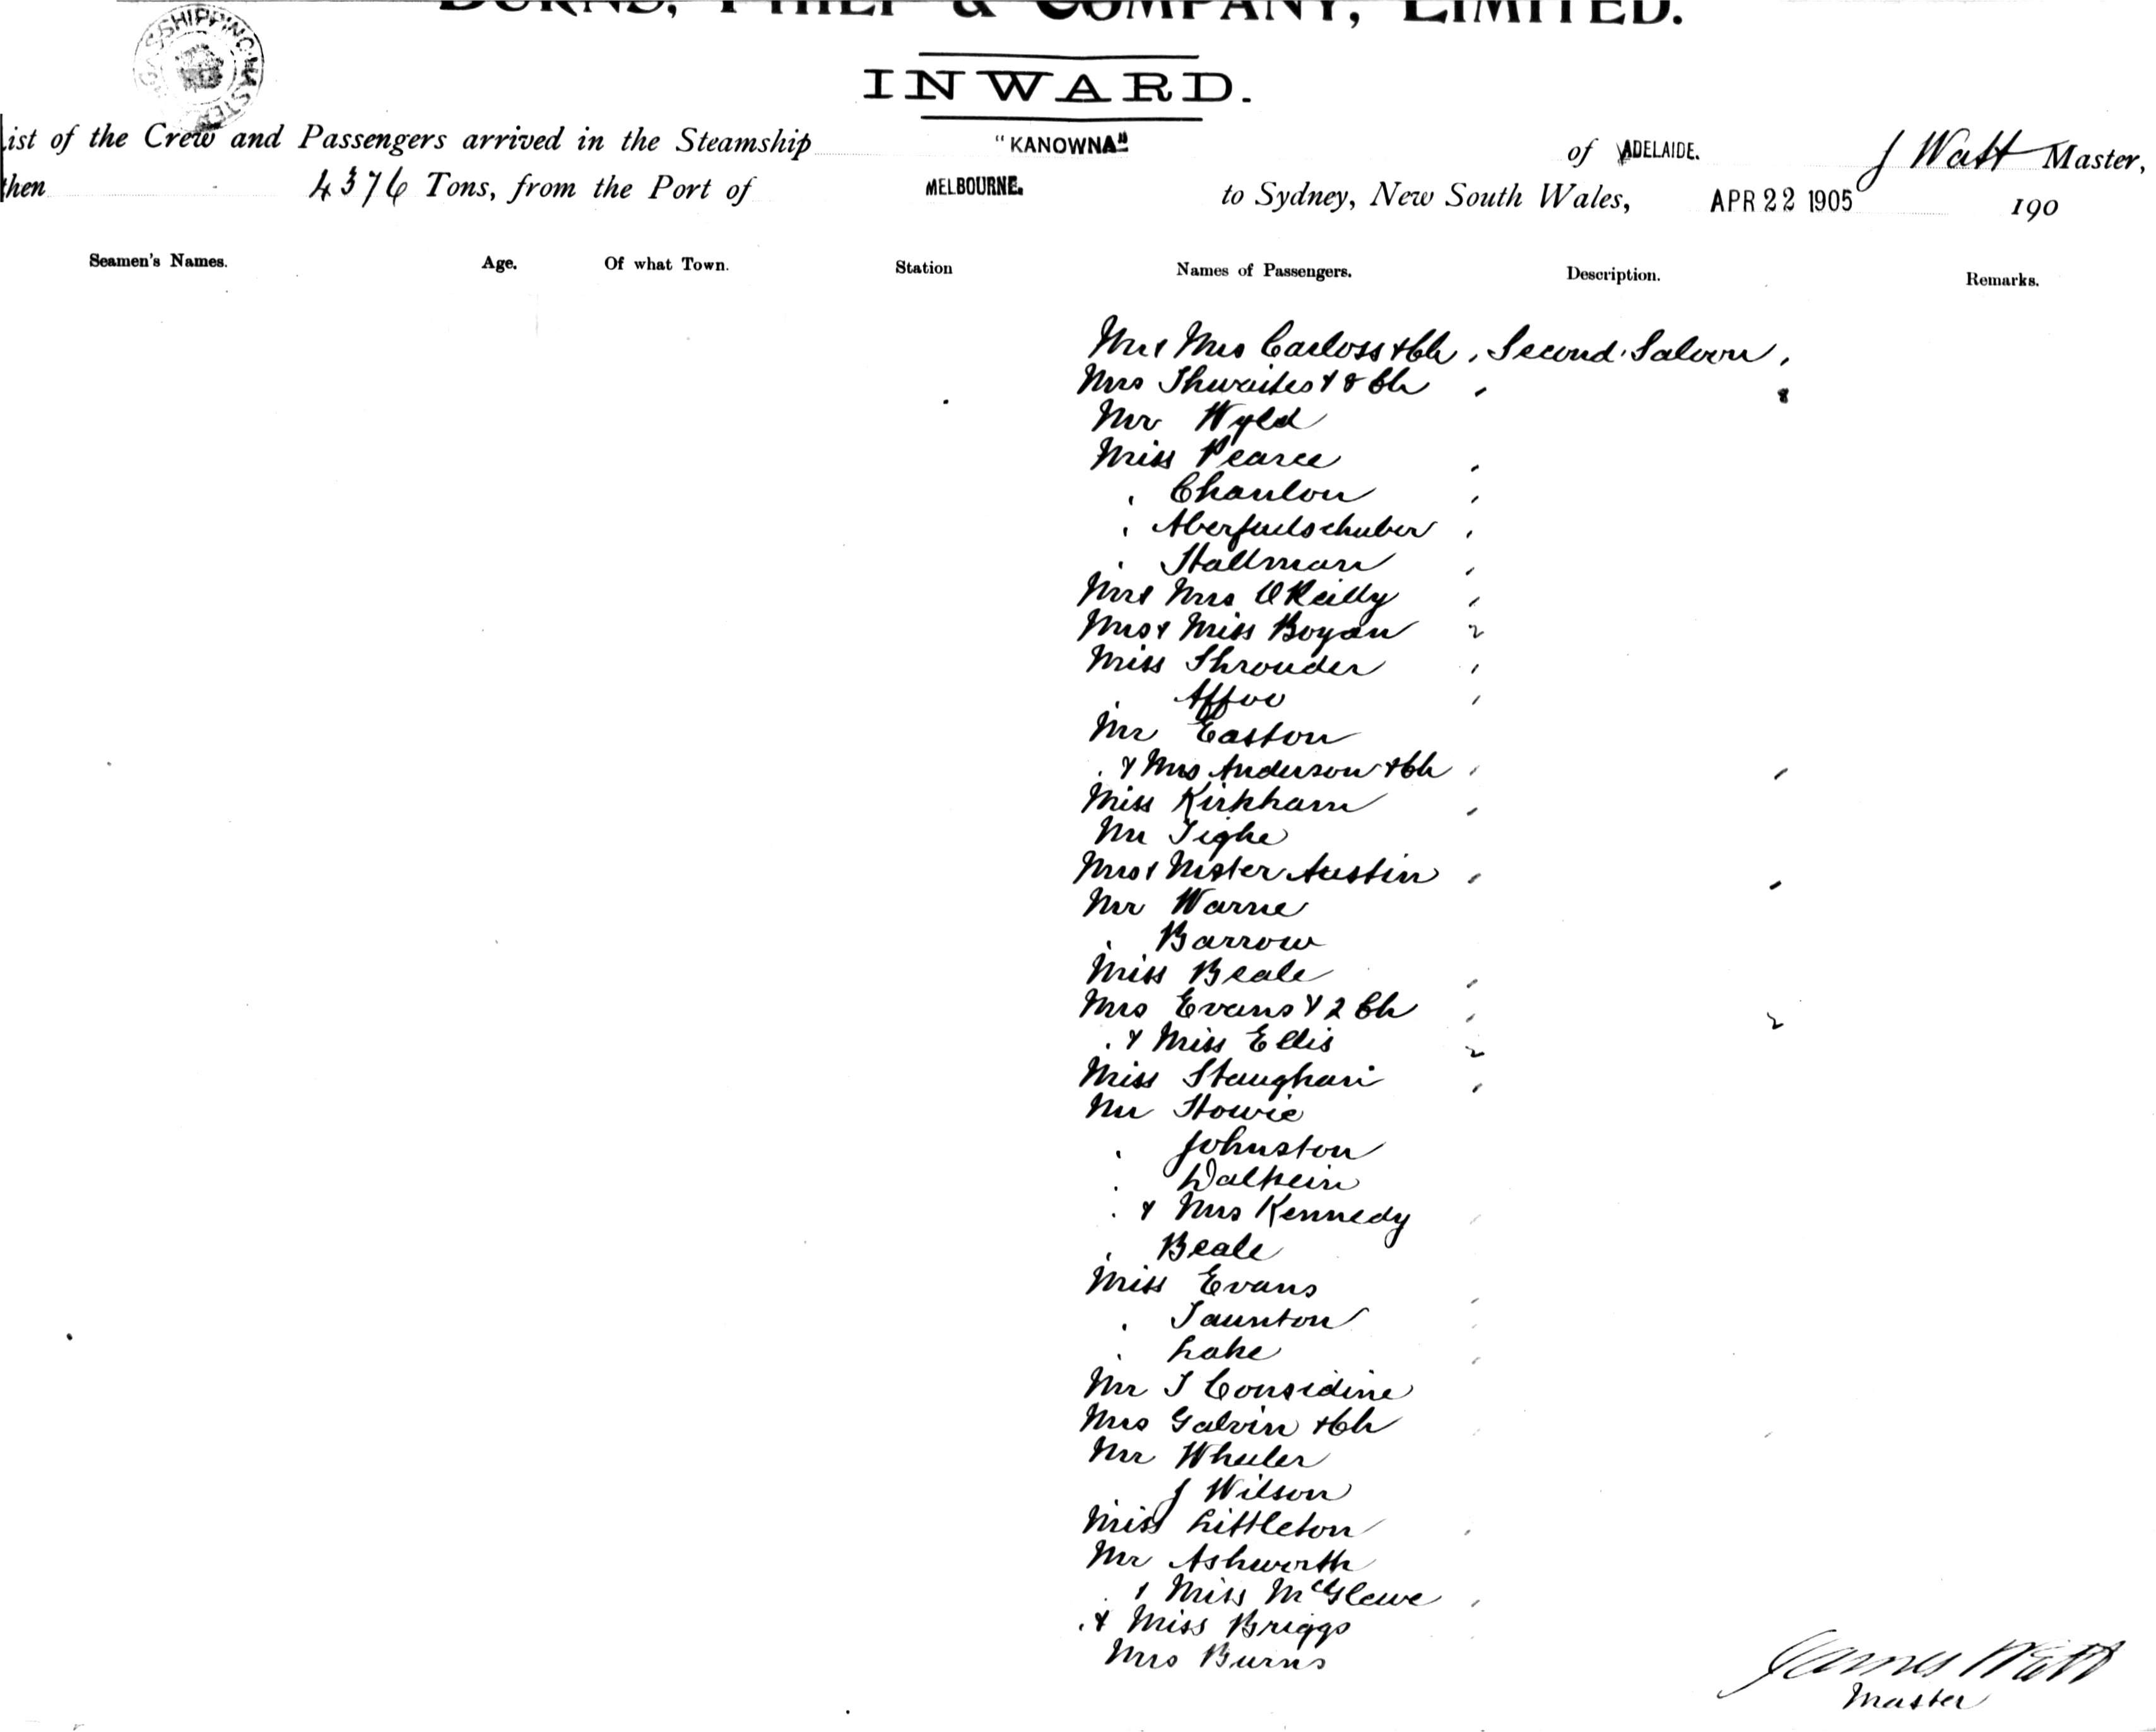 BURNS, PHILP & COMPANY, LIMITED.
SHIPPING MASTER
INWARD.
ist of the Crew and Passengers arrived in the Steamship "KANOWNA" of ADELAIDE. J Watt Master,
then 4376 Tons, from the Port of MELBOURNE. to Sydney, New South Wales, APR 22 1905 190
Seamen's Names. Age. Of what Town. Station Names of Passengers. Description. Remarks.
Mr & Mrs Carloss & Ch , Second Saloon ,
Mrs Thwaites & 8 Ch , 8
Mr Wyld
Miss Pearce ,
" Chanlon ,
" ,
" Hallman ,
Mr & Mrs O'Reilly ,
Mrs & Miss Boyan 2
Miss Shrouder ,
" Affoo ,
Mr Easton
" & Mrs Anderson & Ch , ,
Miss Kirkham ,
Mr Tighe
Mrs & Mster Austin , ,
Mr Warne
" Barrow
Miss Beale ,
Mrs Evans & 2 Ch , 2
" & Miss Ellis 2
Miss ,
Mr Howie
" Johnston
" Dalkein
" & Mrs Kennedy ,
" Beale
Miss Evans ,
" Taunton ,
" Lake ,
Mr T Considine
Mrs Galvin & Ch , ,
Mr Wheeler
" J Wilson
Miss Littleton ,
Mr Ashworth
" & Miss McGlewe ,
" & Miss Briggs
Mrs Burns
James Watt
Master